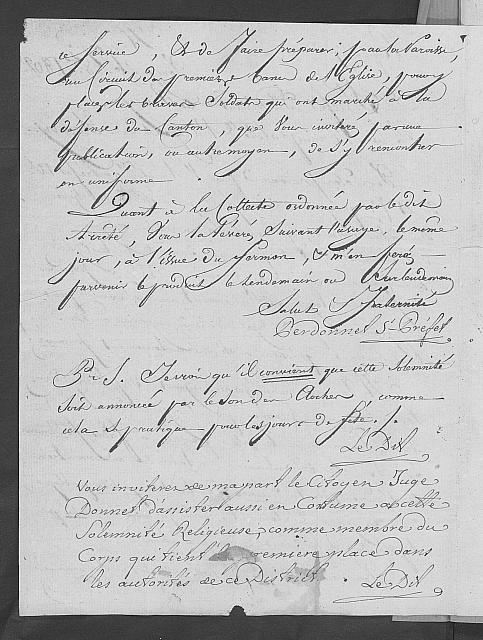 ce Service, & de faire préparer, par la Paroisse,
au Circuit des premiers Bancs de l'Eglise, pour y
placer les braves Soldats qui ont marché à la
défense du Canton, que Vous inviteré, par une
publication, ou autre moyen, de S'y rencontrer
en uniforme.
Quant à la Collecte ordonnée par le dit
Arrêté, Vous la féré, Suivant l'usage, le même
jour, à l'issue du Sermon, & m'en feré
parvenir le produit le lendemain ou Surlendemain
Salut & Fraternité
Perdonnet Ss Préfet
P: S. Je crois qu'il convient que cette Solemnité
Soit annoncée par le Son des Cloches, comme
cela Se pratique pour les jours de fête.
Le Dit
Vous inviterés de ma part le Citoyen Juge
Donnet d'assister aussi en Costume a cette
Solemnité Religieuse, comme membre du
Corps qui tient la première place dans
les autorités de ce District. Le Dit